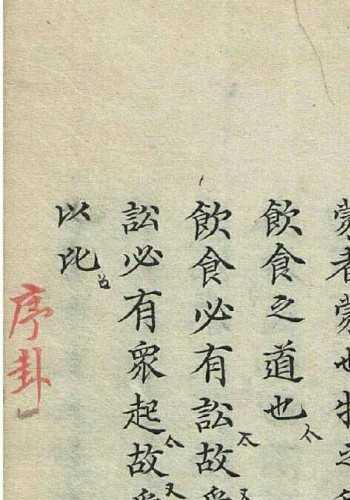 蒙者蒙也物之
飲食之道也
飲食必有訟故
訟必有眾起故
以比
序卦